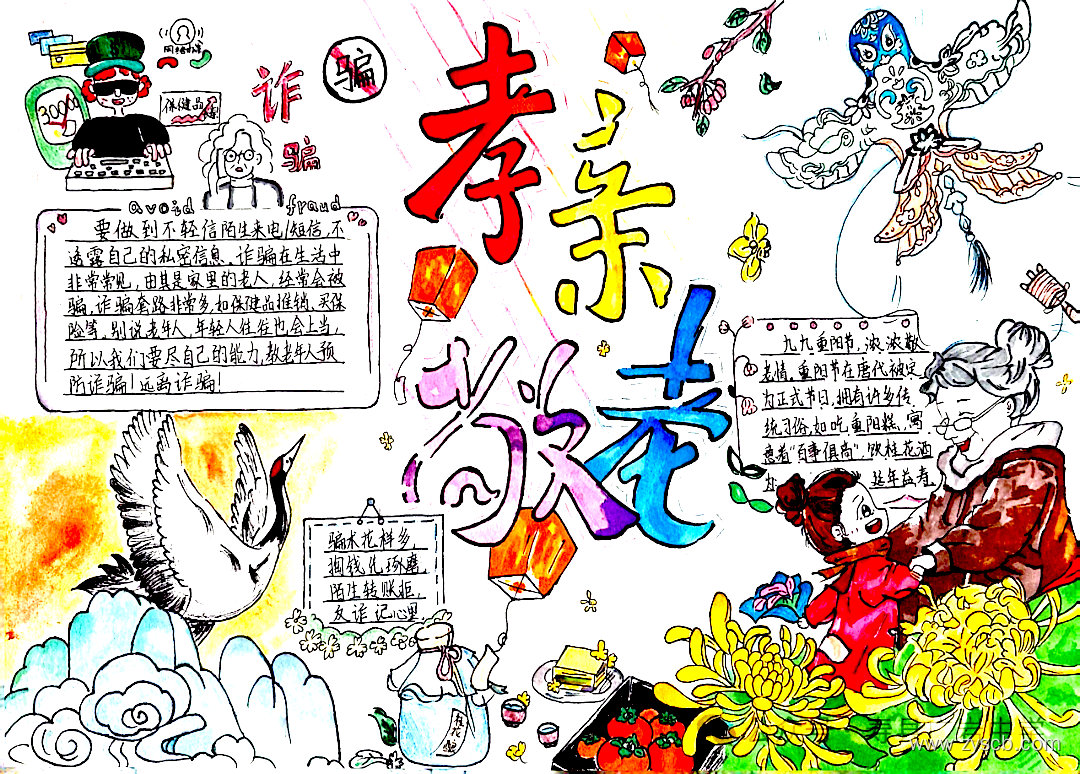 孝亲
敬老
诈
骗
骗
30000
保健品
avoid fraud
要做到不轻信陌生来电/短信,不
透露自己的私密信息、诈骗在生活中
非常常见,由其是家里的老人,经常会被
骗,诈骗套路非常多,如保健品推销,买保
险等。别说老年人,年轻人往往也会上当,
所以我们要尽自己的能力,教老年人预
防诈骗!远离诈骗!
九九重阳节,浓浓敬
老情,重阳节在唐代被定
为正式节日,拥有许多传
统习俗,如吃重阳糕,寓
意着“百事俱高”,饮桂花酒
延年益寿
骗术花样多,
掏钱先琢磨,
陌生转账拒,
反诈记心里
桂花酿
www.zyscb.com